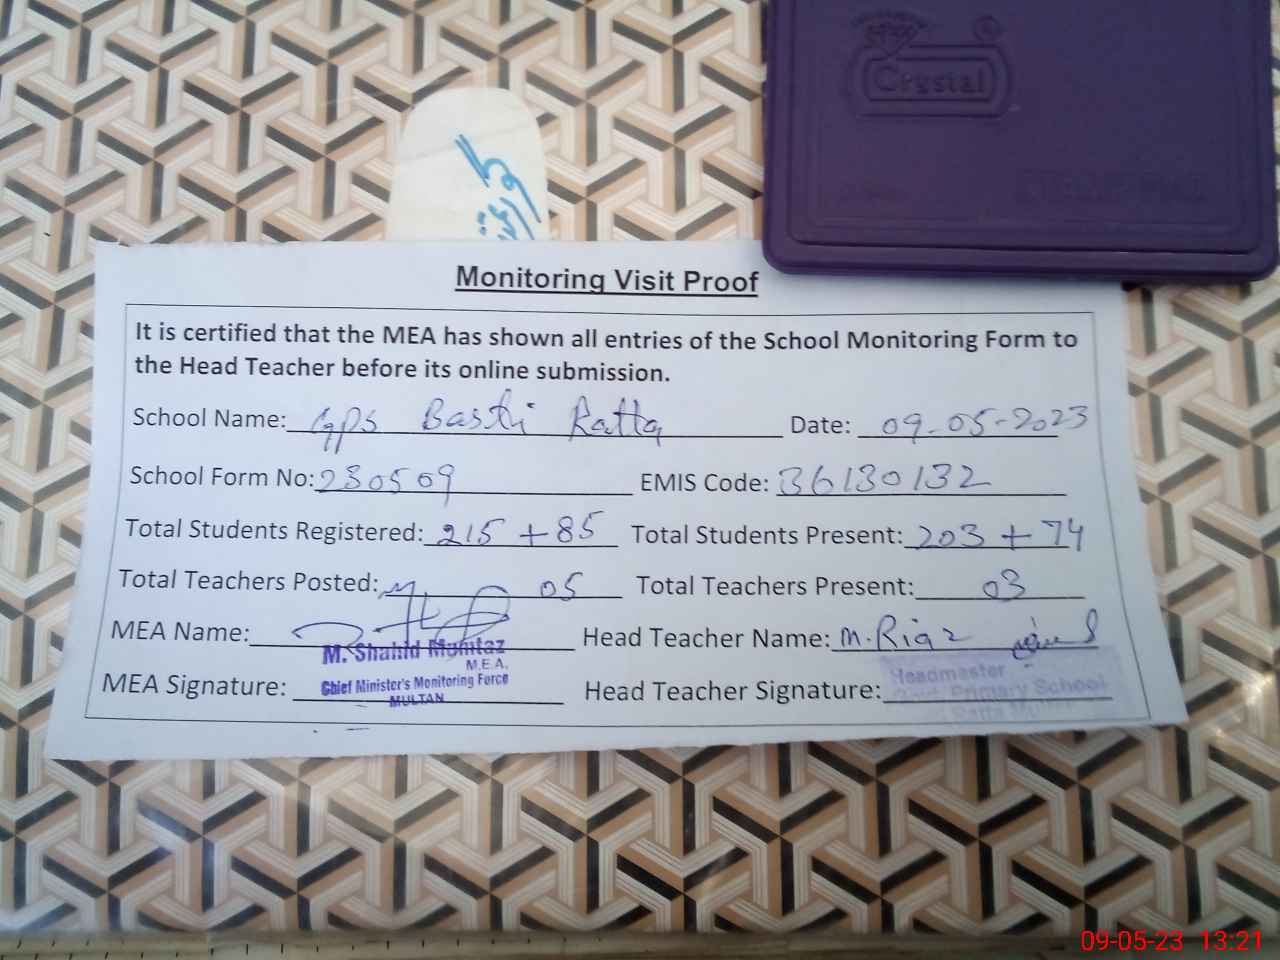 Crystal
Monitoring Visit Proof
It is certified that the MEA has shown all entries of the School Monitoring Form to
the Head Teacher before its online submission.
School Name: GPS Basti Ratta Date: 09-05-2023
School Form No: 230509 EMIS Code: 36130132
Total Students Registered: 215 + 85 Total Students Present: 203 + 74
Total Teachers Posted: 05 Total Teachers Present: 03
MEA Name: Head Teacher Name: M. Riaz
M. Shahid Mumtaz
M.E.A.
Chief Minister's Monitoring Force
MULTAN
MEA Signature: Head Teacher Signature:
Headmaster
Govt. Primary School
Ratta Multan
09-05-23 13:21